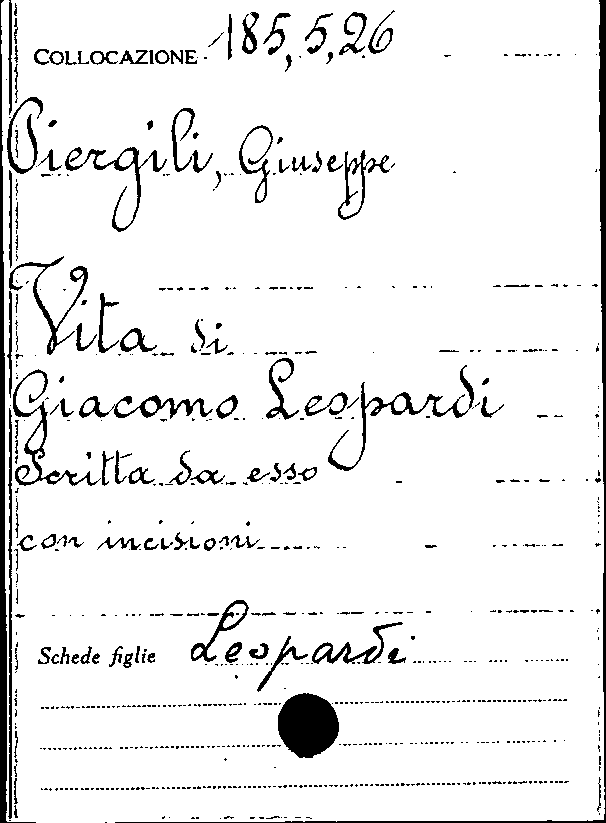 COLLOCAZIONE 185,5,26
Piergili, Giuseppe
Vita di
Giacomo Leopardi
Scritta da esso
con incisioni
Schede figlie Leopardi